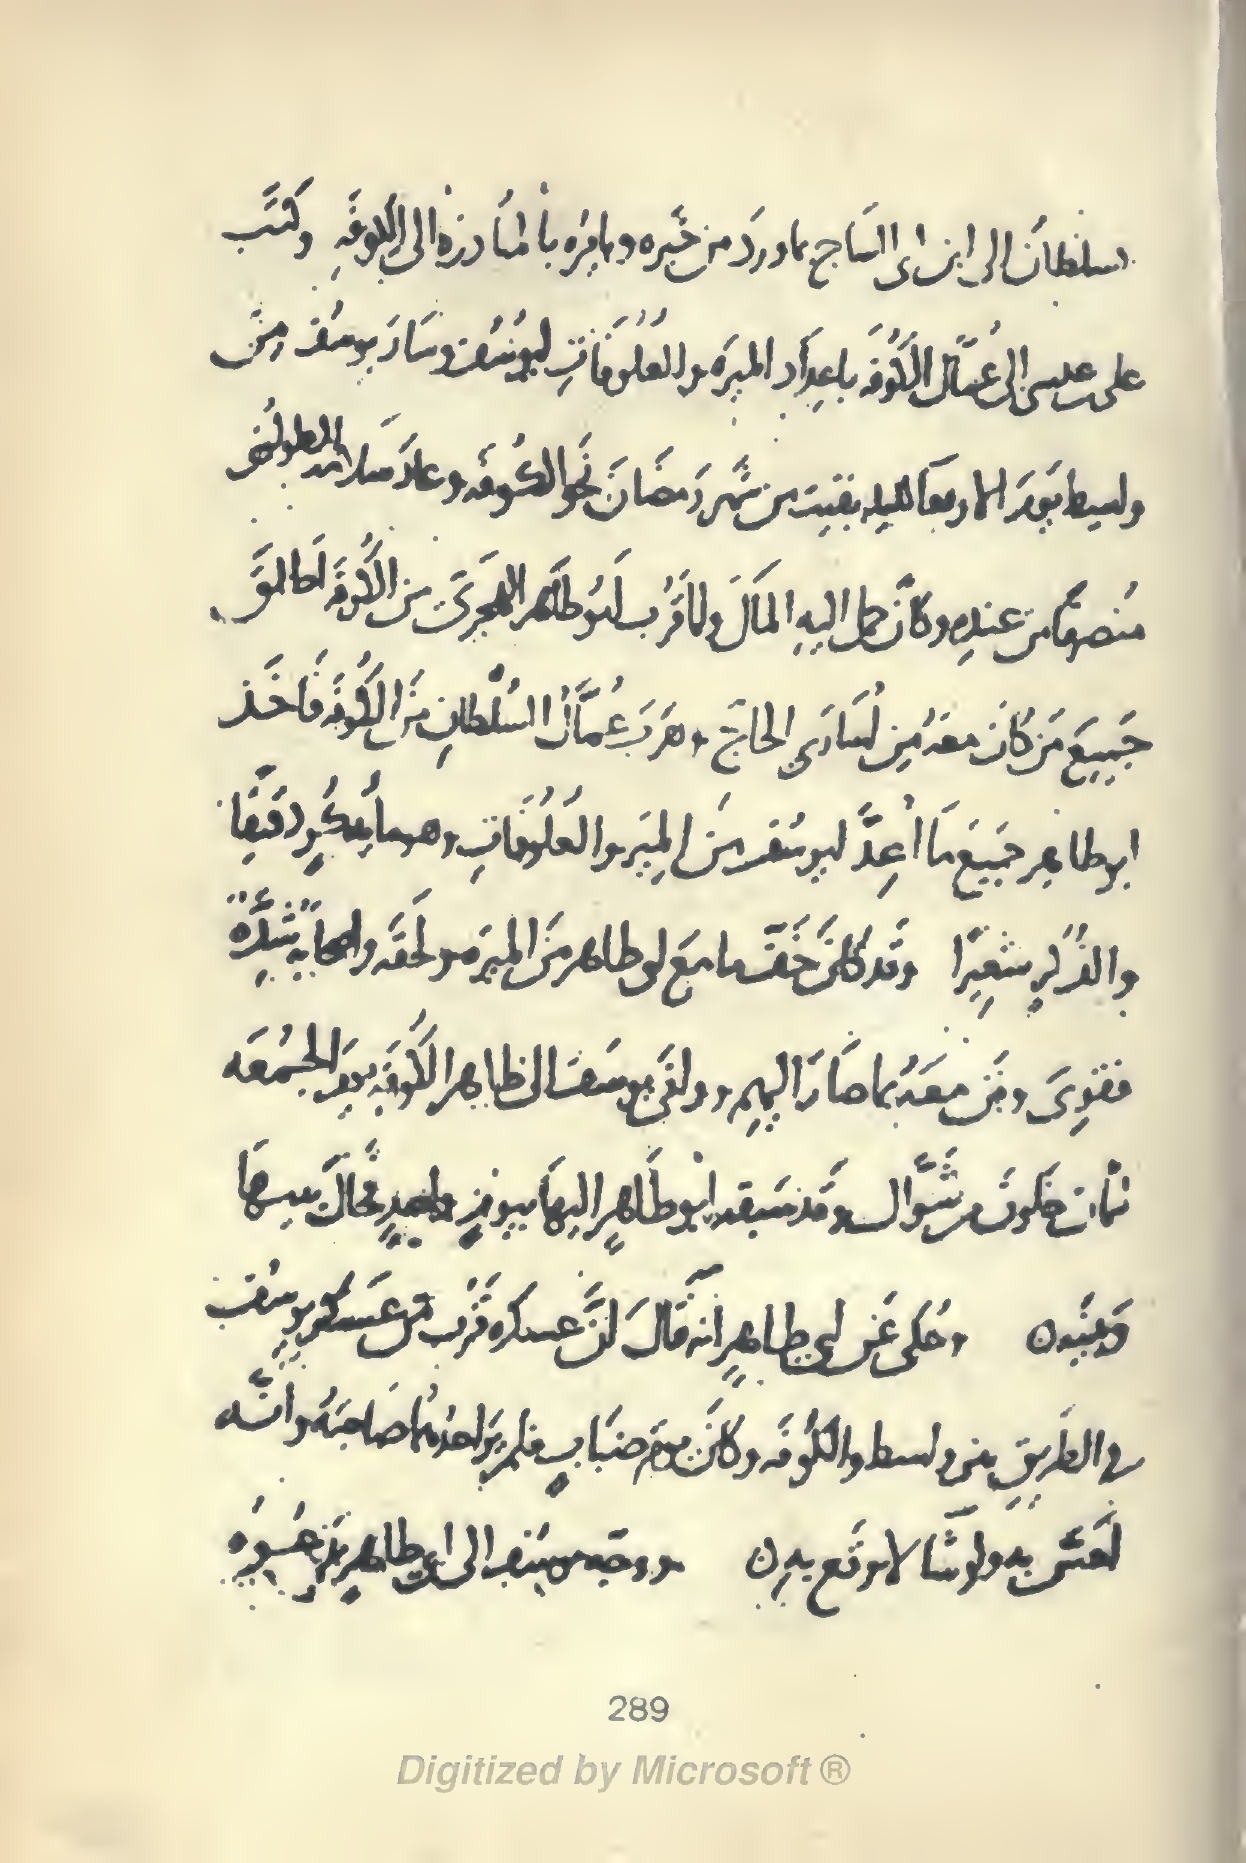 سلطان الى ابن ابى الساج بما ورد من خبره ويامره بالمبادرة الى الكوفة وكتب
على عيسى الى عمال الكوفة باعداد الميرة والعلوفات ليوسف وسار يوسف من
واسط يوم الاربعا لليلة بقيت من شهر رمضان نحو الكوفة وعاد سلامة الطولونى
منصرفا من عنده وكان حمل اليه المال ولما قرب ابو طاهر الهجرى من الكوفة اطلق
جميع من كان معه من اسارى الحاج وهرب عمال السلطان من الكوفة فاخذ
ابو طاهر جميع ما اعد ليوسف من المير والعلوفات وهو مائة كر دقيقا
والف كر شعيرا وقد كان خف ما مع ابى طاهر من الميرة ولحقه واصحابه شدة
فقوى ومن معه بما صار اليهم ووافى يوسف الى ظاهر الكوفة يوم الجمعة
لثمان خلون من شوال وقد سبقه ابو طاهر اليها بيوم واحد فحال بينها
وبينه وحكى عن ابى طاهر انه قال ان عسكره قرب من عسكر يوسف
فى الطريق بين واسط والكوفة وكان يوم ضباب فلم ير احدهما صاحبه وانه
احس به ولو شا لاوقع به ووجه يوسف الى ابى طاهر
289
Digitized by Microsoft ®